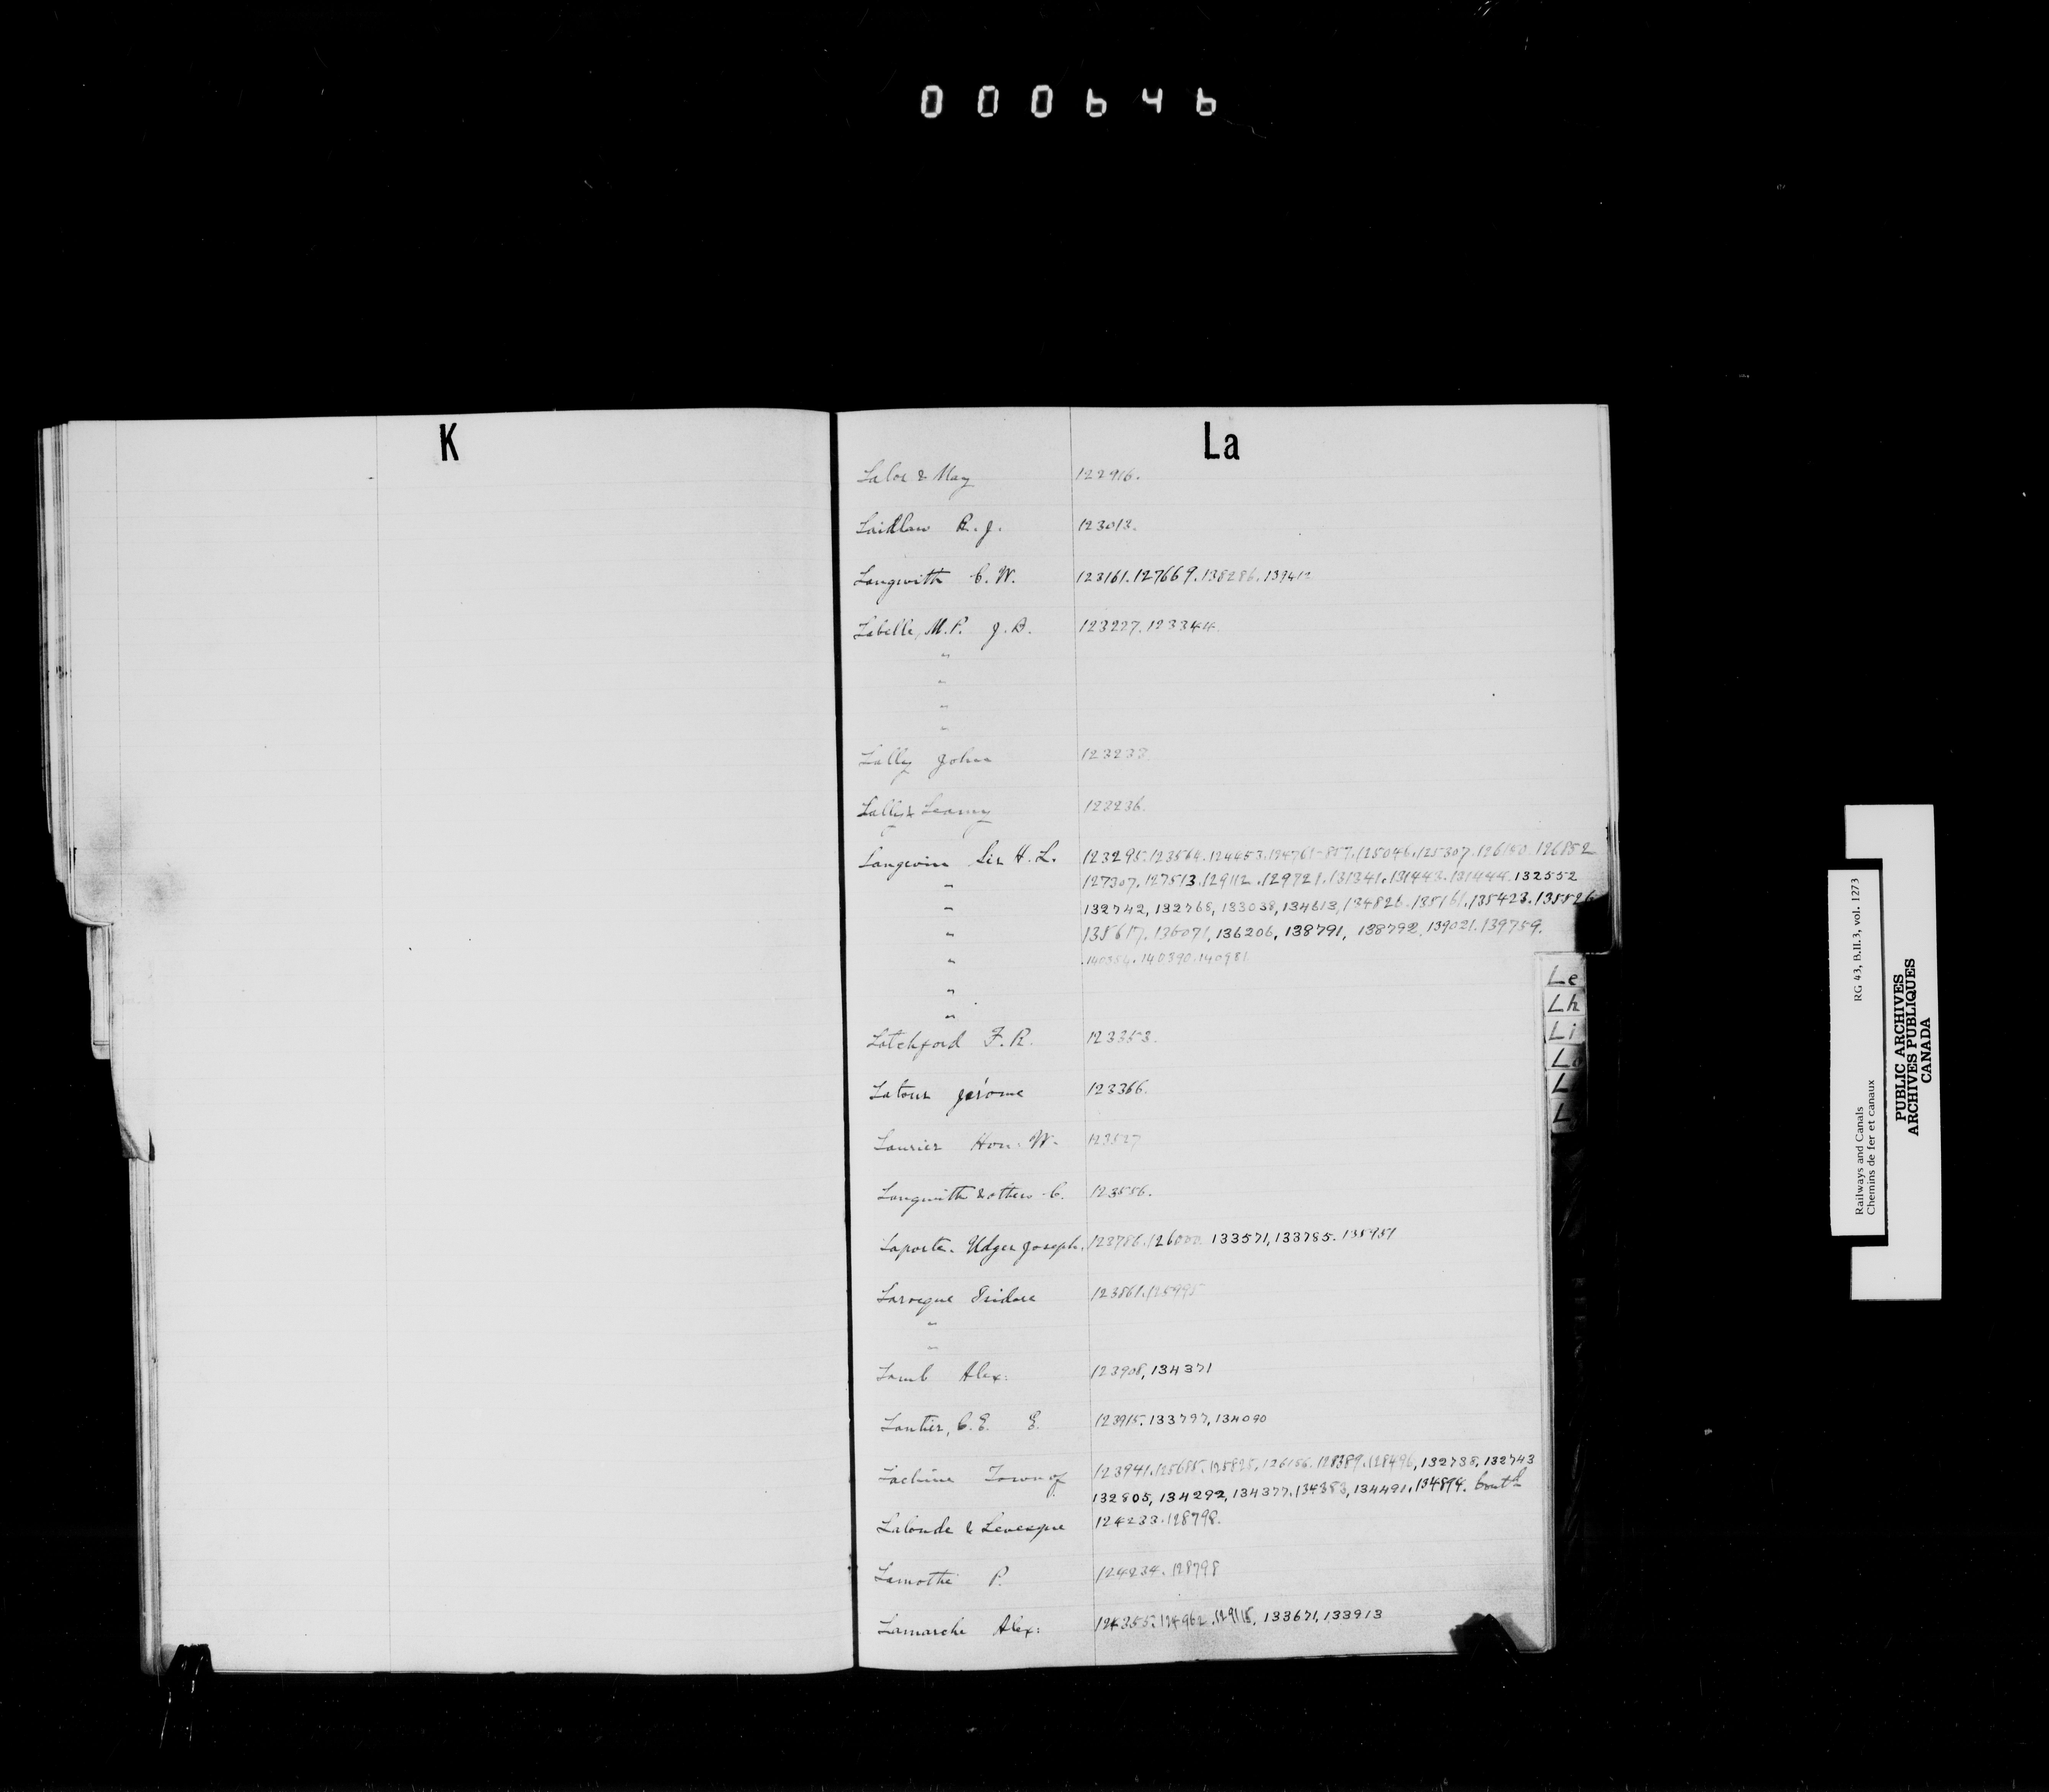 000646
K
La
Lalor & May 122916.
Laidlaw R. J. 123013.
Langwith C. W. 123161. 127669. 138286. 139412
Labelle, M.P. J. B. 123227. 123344.
"
"
"
"
Lally John 123233
Lally & Leamy 123236.
Langevin Sir H. L. 123295. 123564. 124453. 124761-857. 125046. 125307. 126150. 126852
" 127307. 127513. 129112. 129721. 131341. 131443. 131444. 132552
" 132742, 132768, 133038, 134613, 134826. 135161. 135423. 135526
" 135617. 136071, 136206, 138791, 138792, 139021. 139759.
" 140384. 140390. 140981
"
"
Latchford F. R. 123353.
Latour Jérome 123366.
Laurier Hon: W. 123527
Langwith & others C. 123556.
Laporte. Udger Joseph. 123786. 126000. 133571, 133785. 135951
Larocque Isidore 123861. 125995
"
"
Lamb Alex: 123908, 134371
Lantier, C.E. E. 123915. 133797, 134090
Lachine Town of 123941. 125685. 125825. 126156. 128389. 128496, 132738, 132743
132805, 134292, 134377. 134383, 134491. 134894. Contd
Lalonde & Levesque 124233. 128798.
Lamothe P. 124234. 128798
Lamarche Alex: 124355. 124962. 129115, 133671, 133913
Le
Lh
Li
Lo
L
L
Railways and Canals RG 43, B.II.3, vol. 1273
Chemins de fer et canaux
PUBLIC ARCHIVES
ARCHIVES PUBLIQUES
CANADA